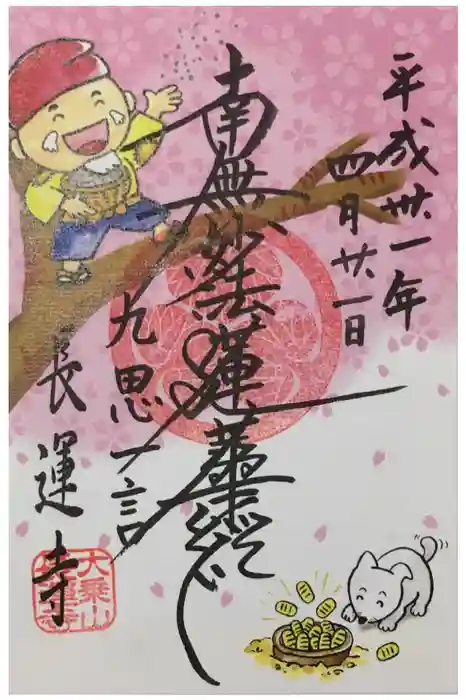 平成丗一年
四月廿一日
南無妙法蓮華経
九思一言
長運寺
大乗山
長運寺